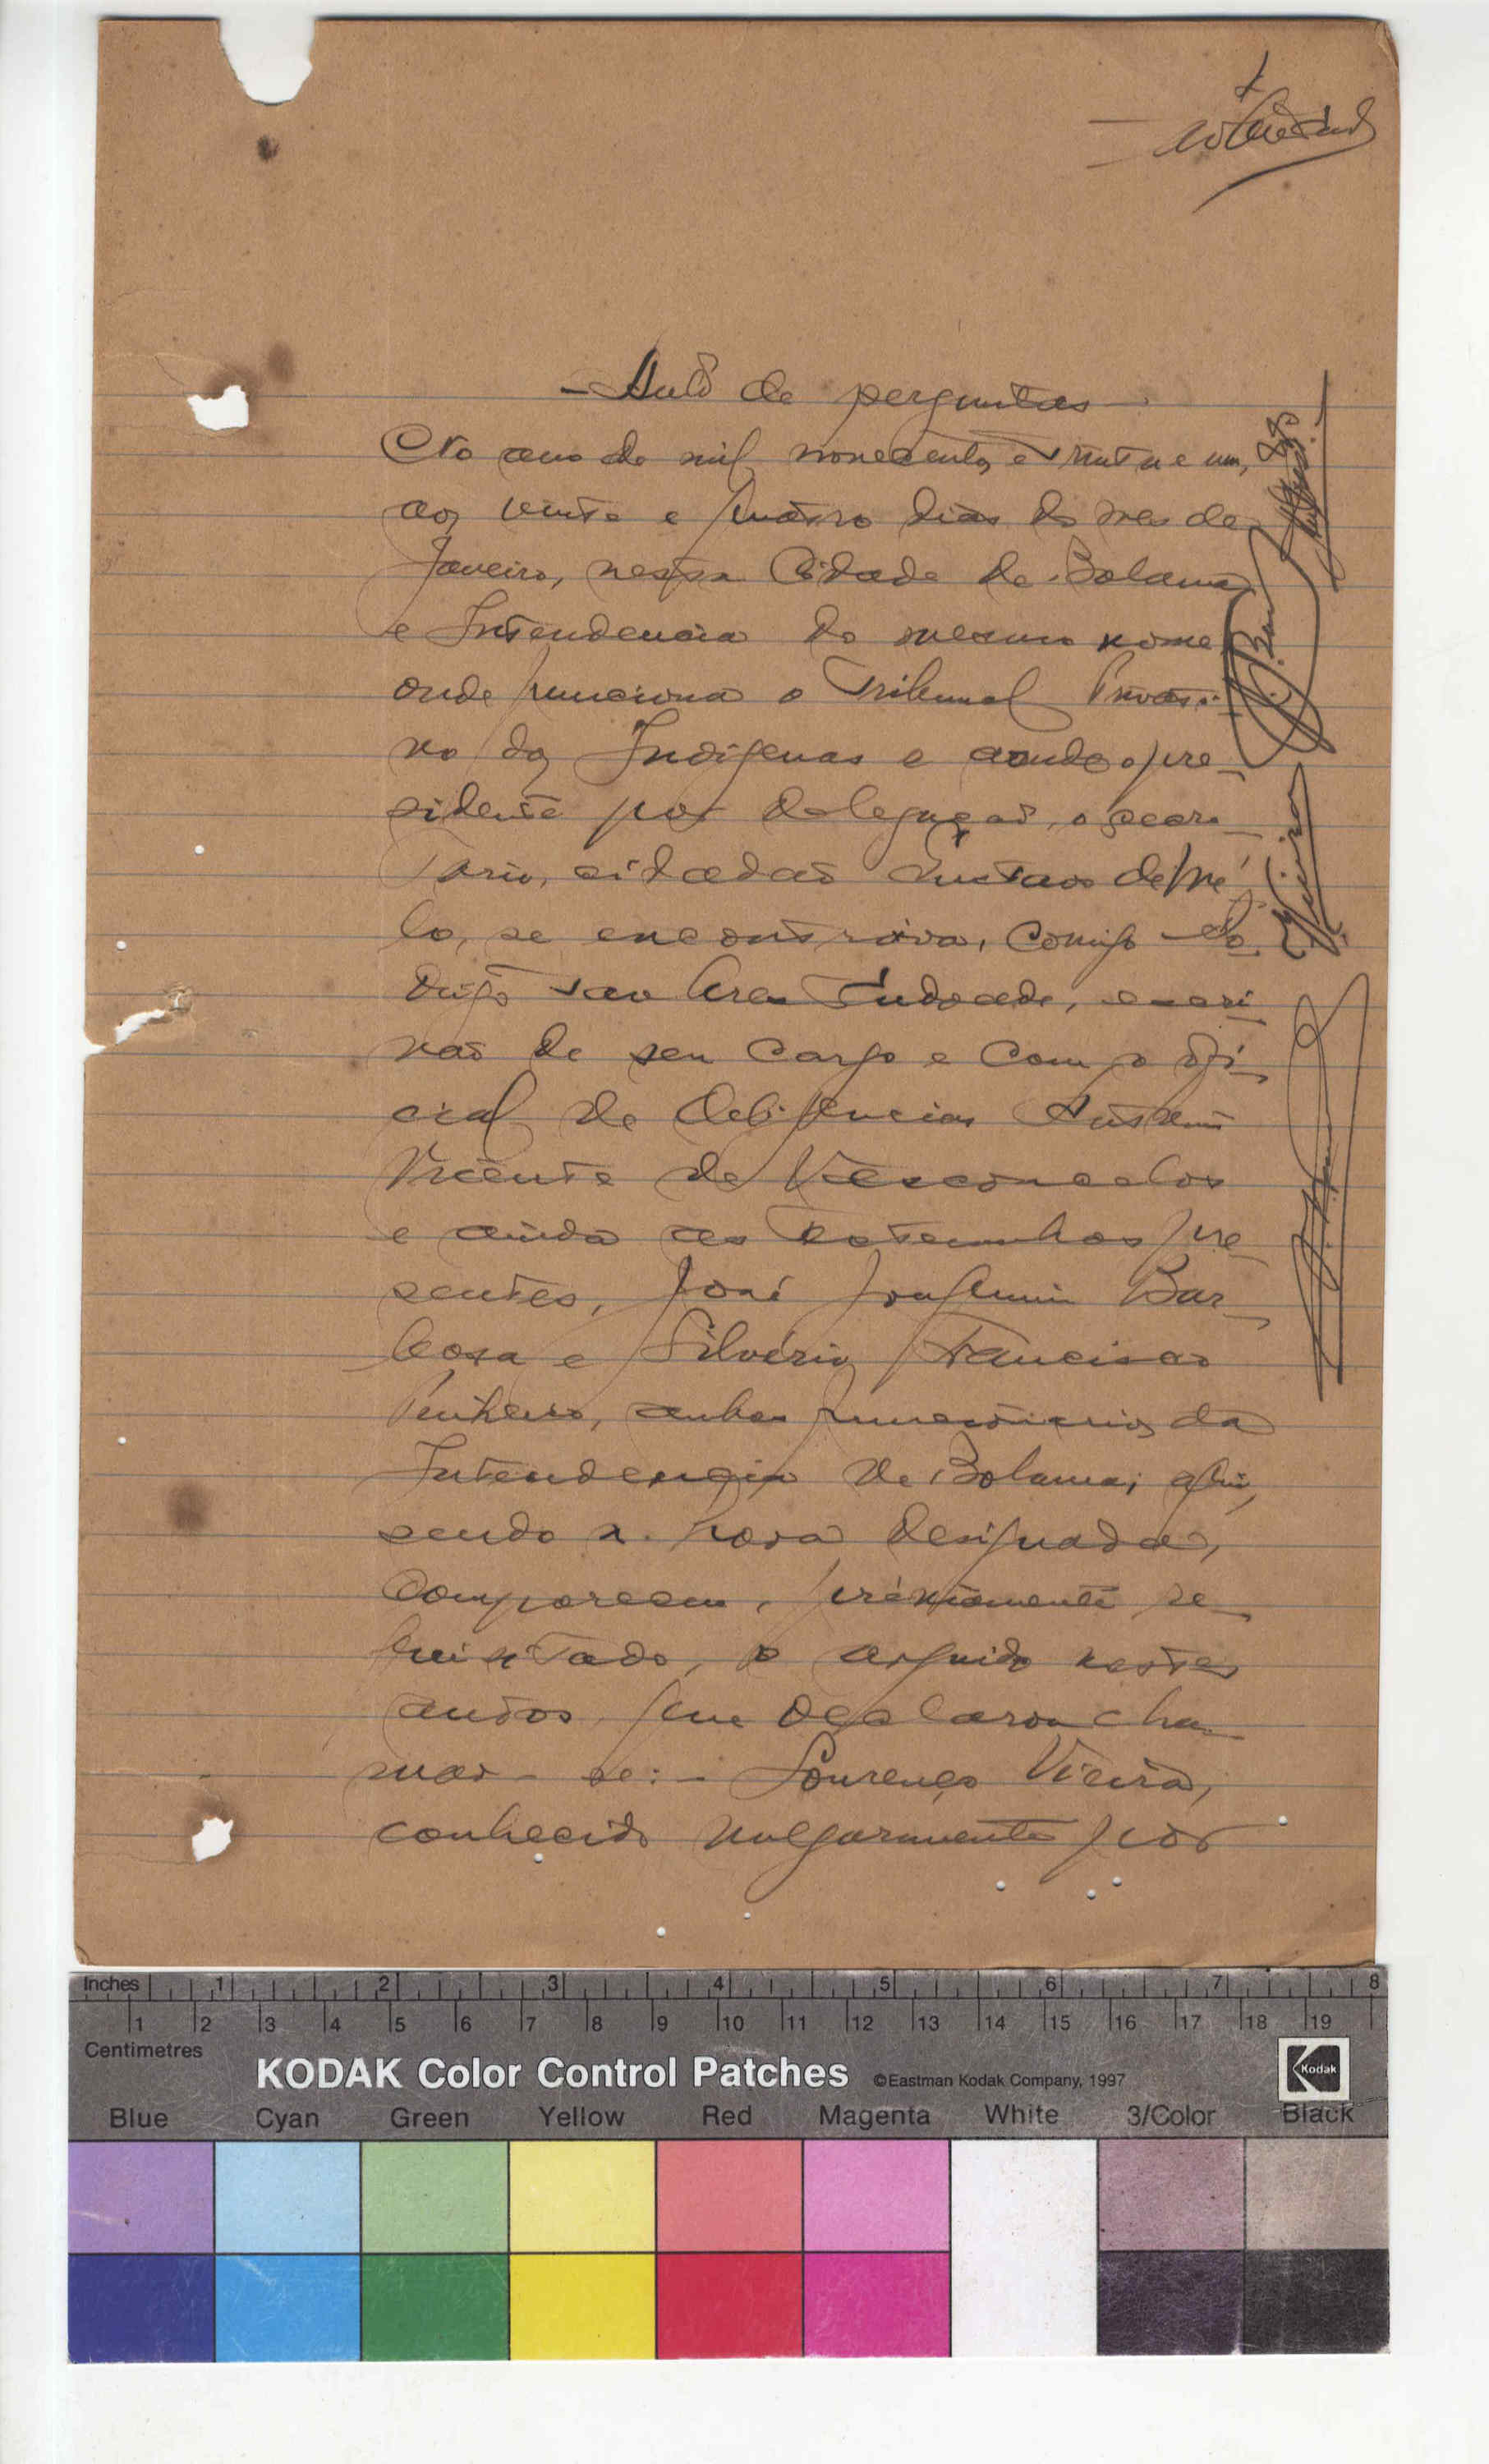 - Auto de perguntas -
No ano de mil novecentos e trinta e um,
aos vinte e quatro dias do mes de
Janeiro, nessa Cidade de Bolama
e Intendencia do mesmo nome
onde funciona o Tribunal Privati-
vo dos Indigenas e aonde o pre-
sidente por delegação, o secre-
tario, cidadão Gustavo de Mé
lo, se encontrava, comigo
escri-
vão de seu cargo e com o ofi-
cial de deligencias
Vicente de Vasconcelos
e ainda as testemunhas pre
sentes, José Bar-
bosa e Silvério Francisco
Pinheiro, ambos funcionarios da
Intendencia de Bolama; aqui,
sendo a hora designada,
compareceu, préviamente re-
quisitado, o arguido nestes
autos que declarou cha-
mar-se:- Lourenço Vieira,
conhecido vulgarmente por
Vieira
Inches 1 2 3 4 5 6 7 8
1 2 3 4 5 6 7 8 9 10 11 12 13 14 15 16 17 18 19
Centimetres
KODAK Color Control Patches ©Eastman Kodak Company, 1997 Kodak
Blue Cyan Green Yellow Red Magenta White 3/Color Black